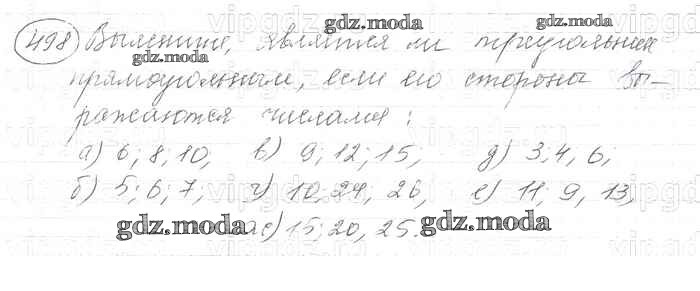 498 Выясните, является ли треугольник
прямоугольным, если его стороны вы-
ражаются числами:
а) 6; 8; 10, в) 9; 12; 15, д) 3,4, 6;
б) 5; 6; 7, г) 10, 24, 26, е) 11; 9, 13,
ж) 15; 20, 25.
gdz.moda
gdz.moda
gdz.moda
gdz.moda
gdz.moda